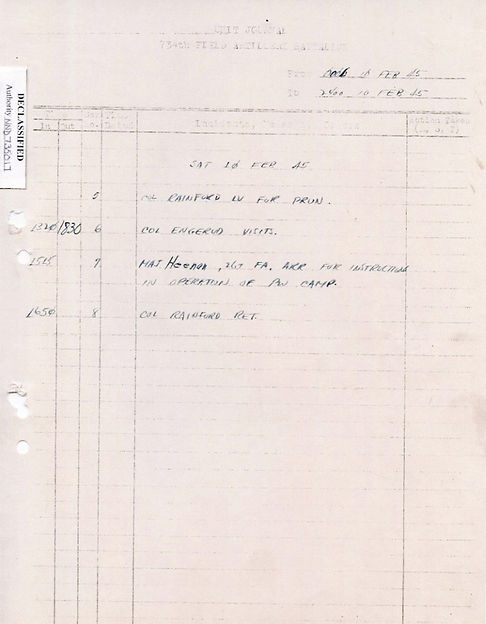 UNIT JOURNAL
734th FIELD ARTILLERY BATTALION
From 0001 10 FEB 45
To 2400 10 FEB 45
DECLASSIFIED
Authority NND 735017
In Out
Incidents, Messages, Orders
Action Taken
SAT 10 FEB 45
5 COL RAINFORD LV FOR PRUN.
1320 1830 6 COL ENGERUD VISITS.
1515 7 MAJ , 267 FA. ARR FOR INSTRUCTION
IN OPERATOIN OF PW CAMP.
1650 8 COL RAINFORD RET.